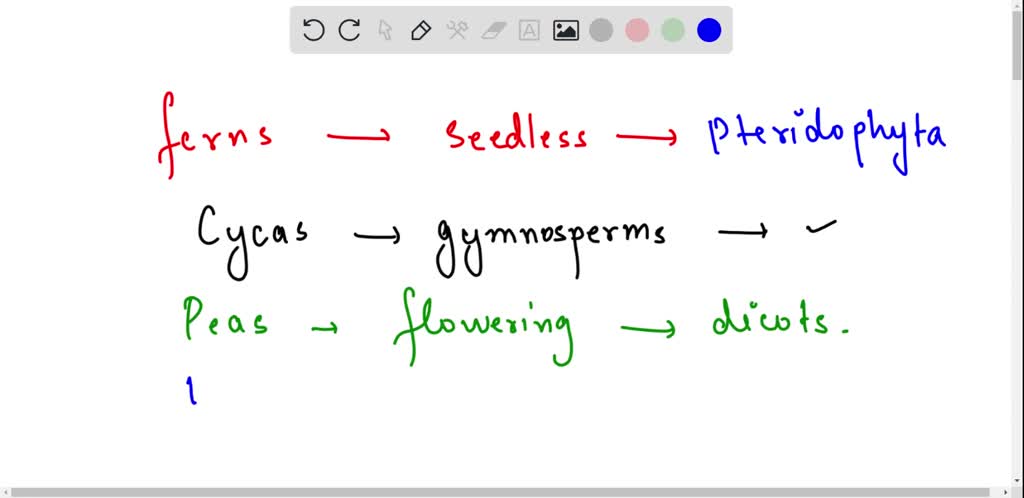 ferns → seedless → Pteridophyta
Cycas → gymnosperms → ✓
Peas → flowering → dicots.